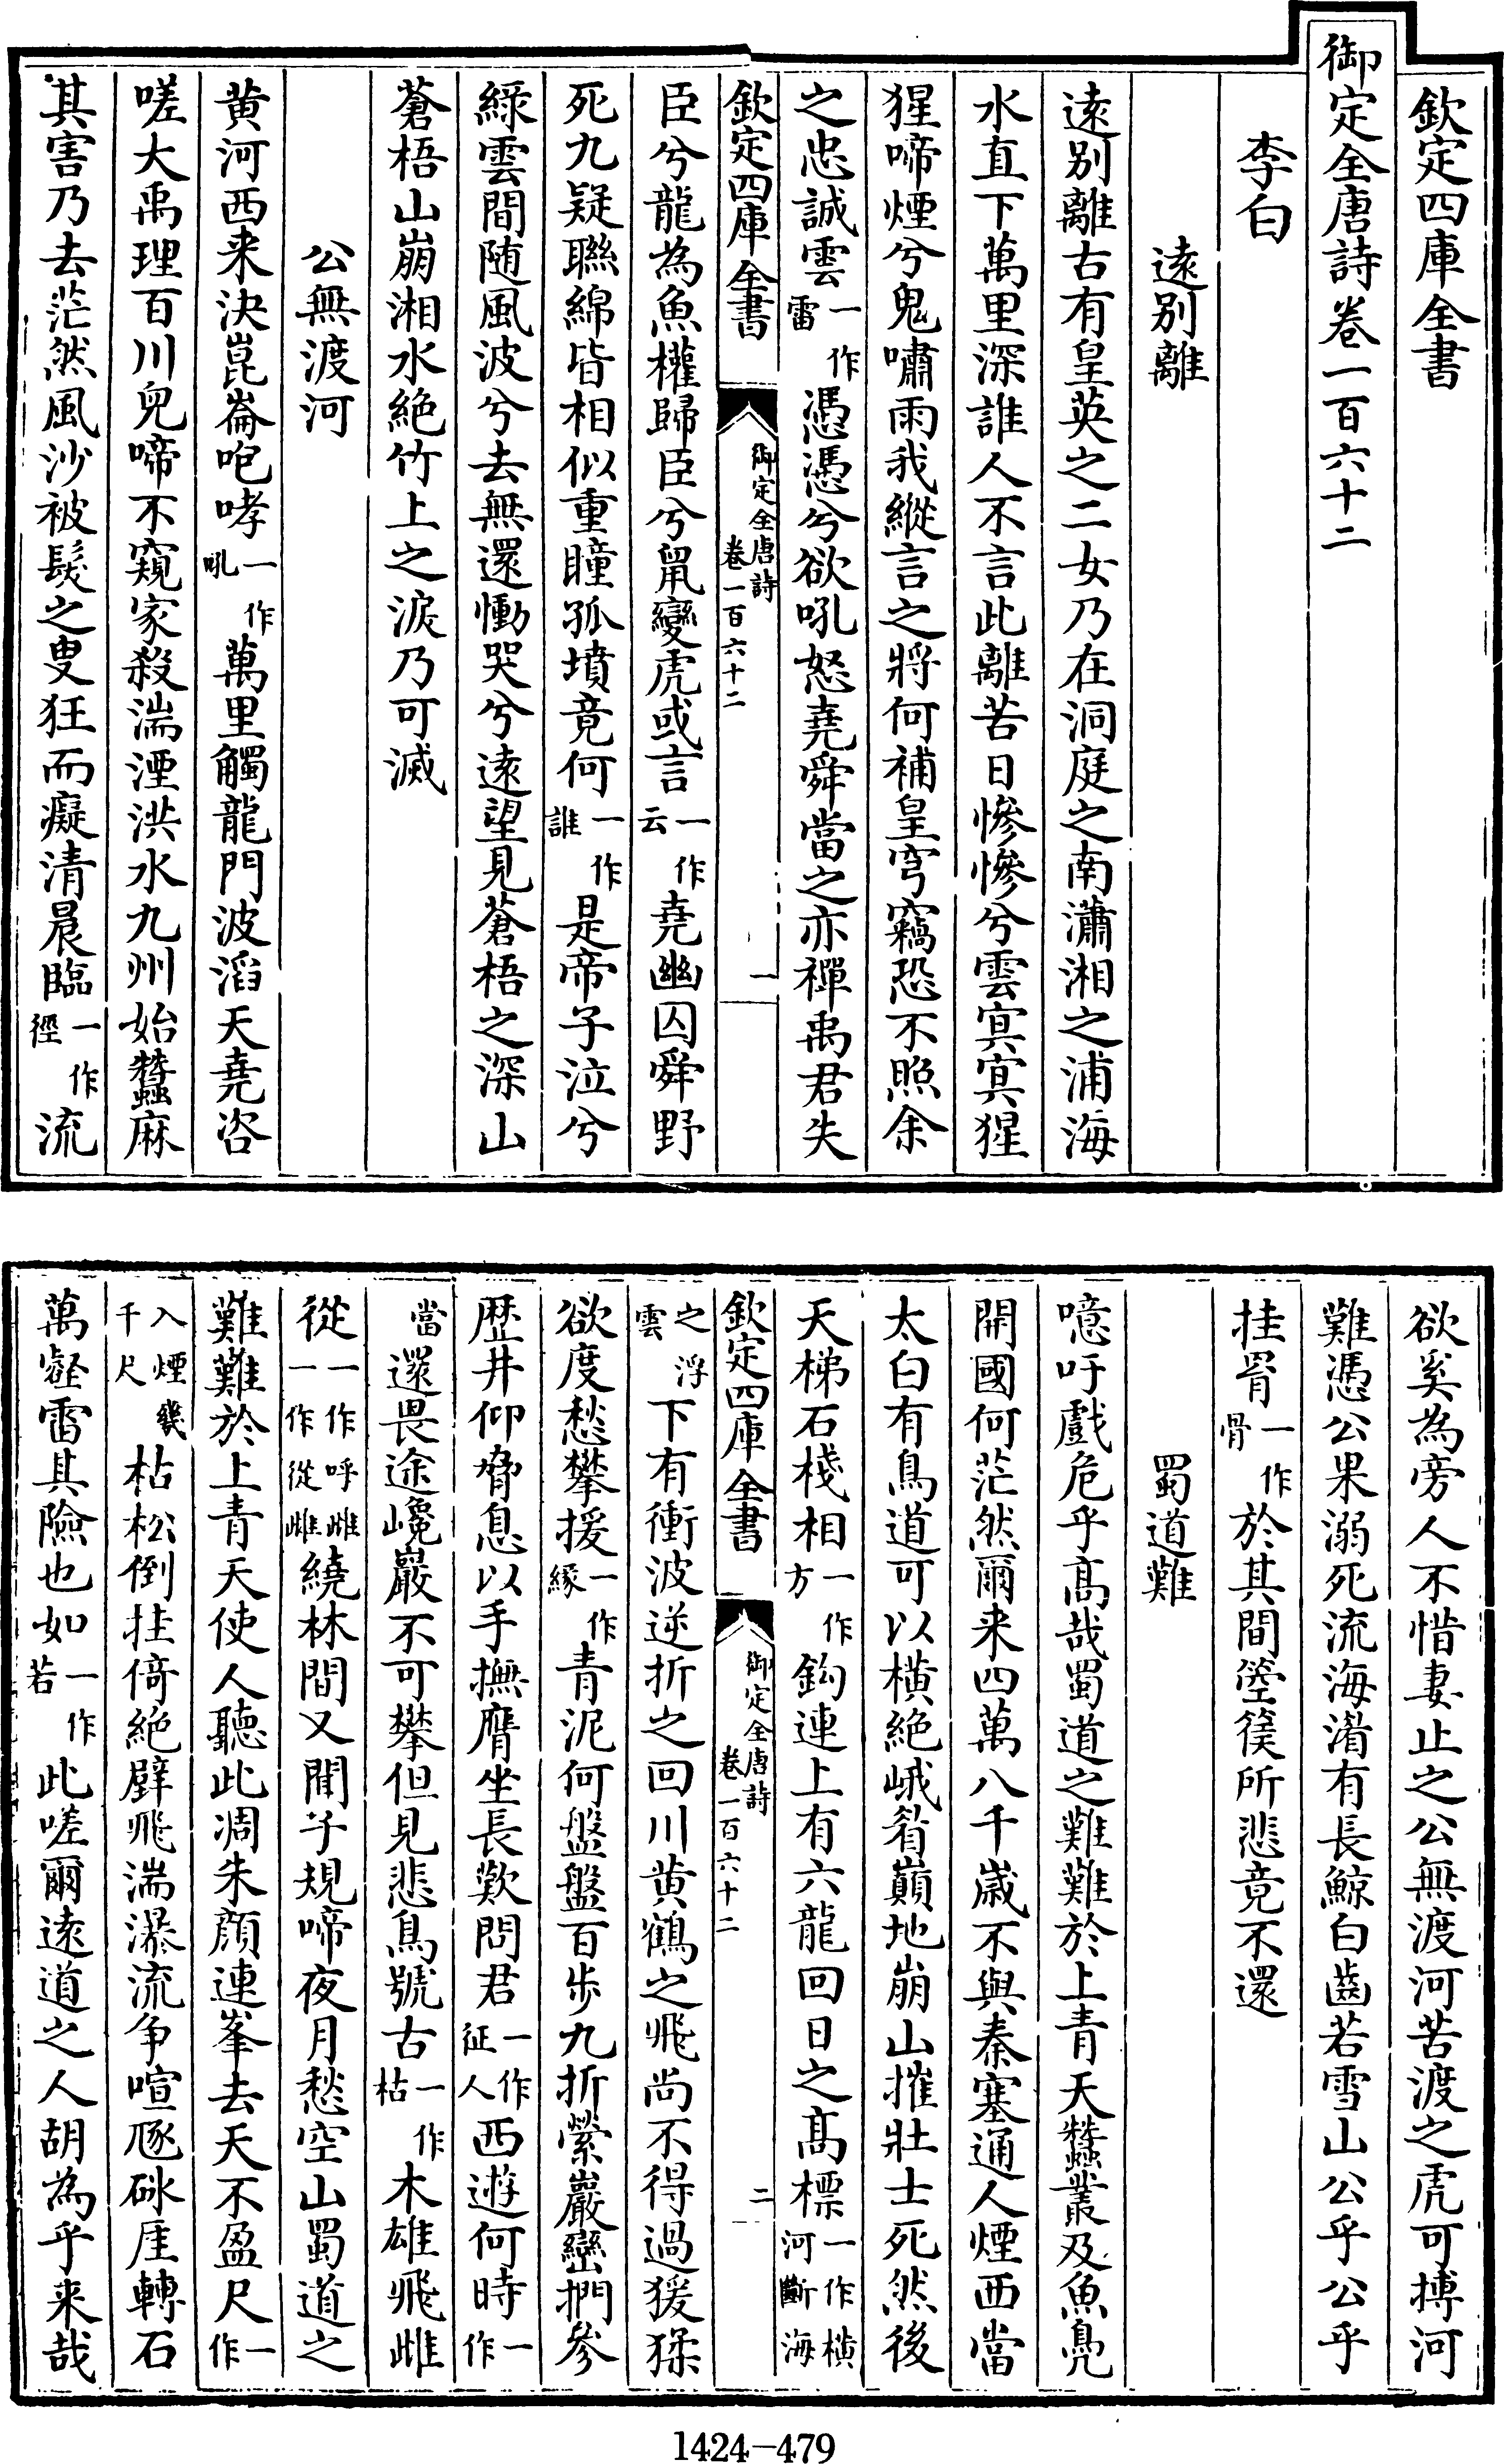 欽定四庫全書
御定全唐詩卷一百六十二
李白
遠别離
遠别離古有皇英之二女乃在洞庭之南瀟湘之浦海
水直下萬里深誰人不言此離苦日慘慘兮雲冥冥猩
猩啼煙兮鬼嘯雨我縱言之將何補皇穹竊恐不照余
之忠誠雲一作雷憑憑兮欲吼怒堯舜當之亦禪禹君失
欽定四庫全書 御定全唐詩 卷一百六十二 一
臣兮龍為魚權歸臣兮鼠變虎或言一作云堯幽囚舜野
死九疑聯綿皆相似重瞳孤墳竟何一作誰是帝子泣兮
綠雲間随風波兮去無還慟哭兮遠望見蒼梧之深山
蒼梧山崩湘水絶竹上之淚乃可滅
公無渡河
黄河西来決崑崙咆哮一作吼萬里觸龍門波滔天堯咨
嗟大禹理百川兒啼不窺家殺湍湮洪水九州始蠶麻
其害乃去茫然風沙被髮之叟狂而癡清晨臨一作徑流
欲奚為旁人不惜妻止之公無渡河苦渡之虎可搏河
難憑公果溺死流海湄有長鯨白齒若雪山公乎公乎
挂罥一作骨於其間箜篌所悲竟不還
蜀道難
噫吁戲危乎髙哉蜀道之難難於上青天蠶叢及魚鳧
開國何茫然爾来四萬八千歲不與秦塞通人煙西當
太白有鳥道可以橫絶峨眉巔地崩山摧壯士死然後
天梯石棧相一作方鈎連上有六龍回日之髙標一作橫河斷海
欽定四庫全書 御定全唐詩 卷一百六十二 二
之浮雲下有衝波逆折之回川黄鶴之飛尚不得過猨猱
欲度愁攀援一作緣青泥何盤盤百歩九折縈巖巒捫參
歴井仰脅息以手撫膺坐長歎問君一作征人西遊何時一作
當還畏途巉巖不可攀但見悲鳥號古一作枯木雄飛雌
從一作呼雌一作從雌繞林間又聞子規啼夜月愁空山蜀道之
難難於上青天使人聽此凋朱顔連峯去天不盈尺一作
入煙幾千尺枯松倒挂倚絶壁飛湍瀑流争喧豗砯厓轉石
萬壑雷其險也如一作若此嗟爾遠道之人胡為乎来哉
1424-479